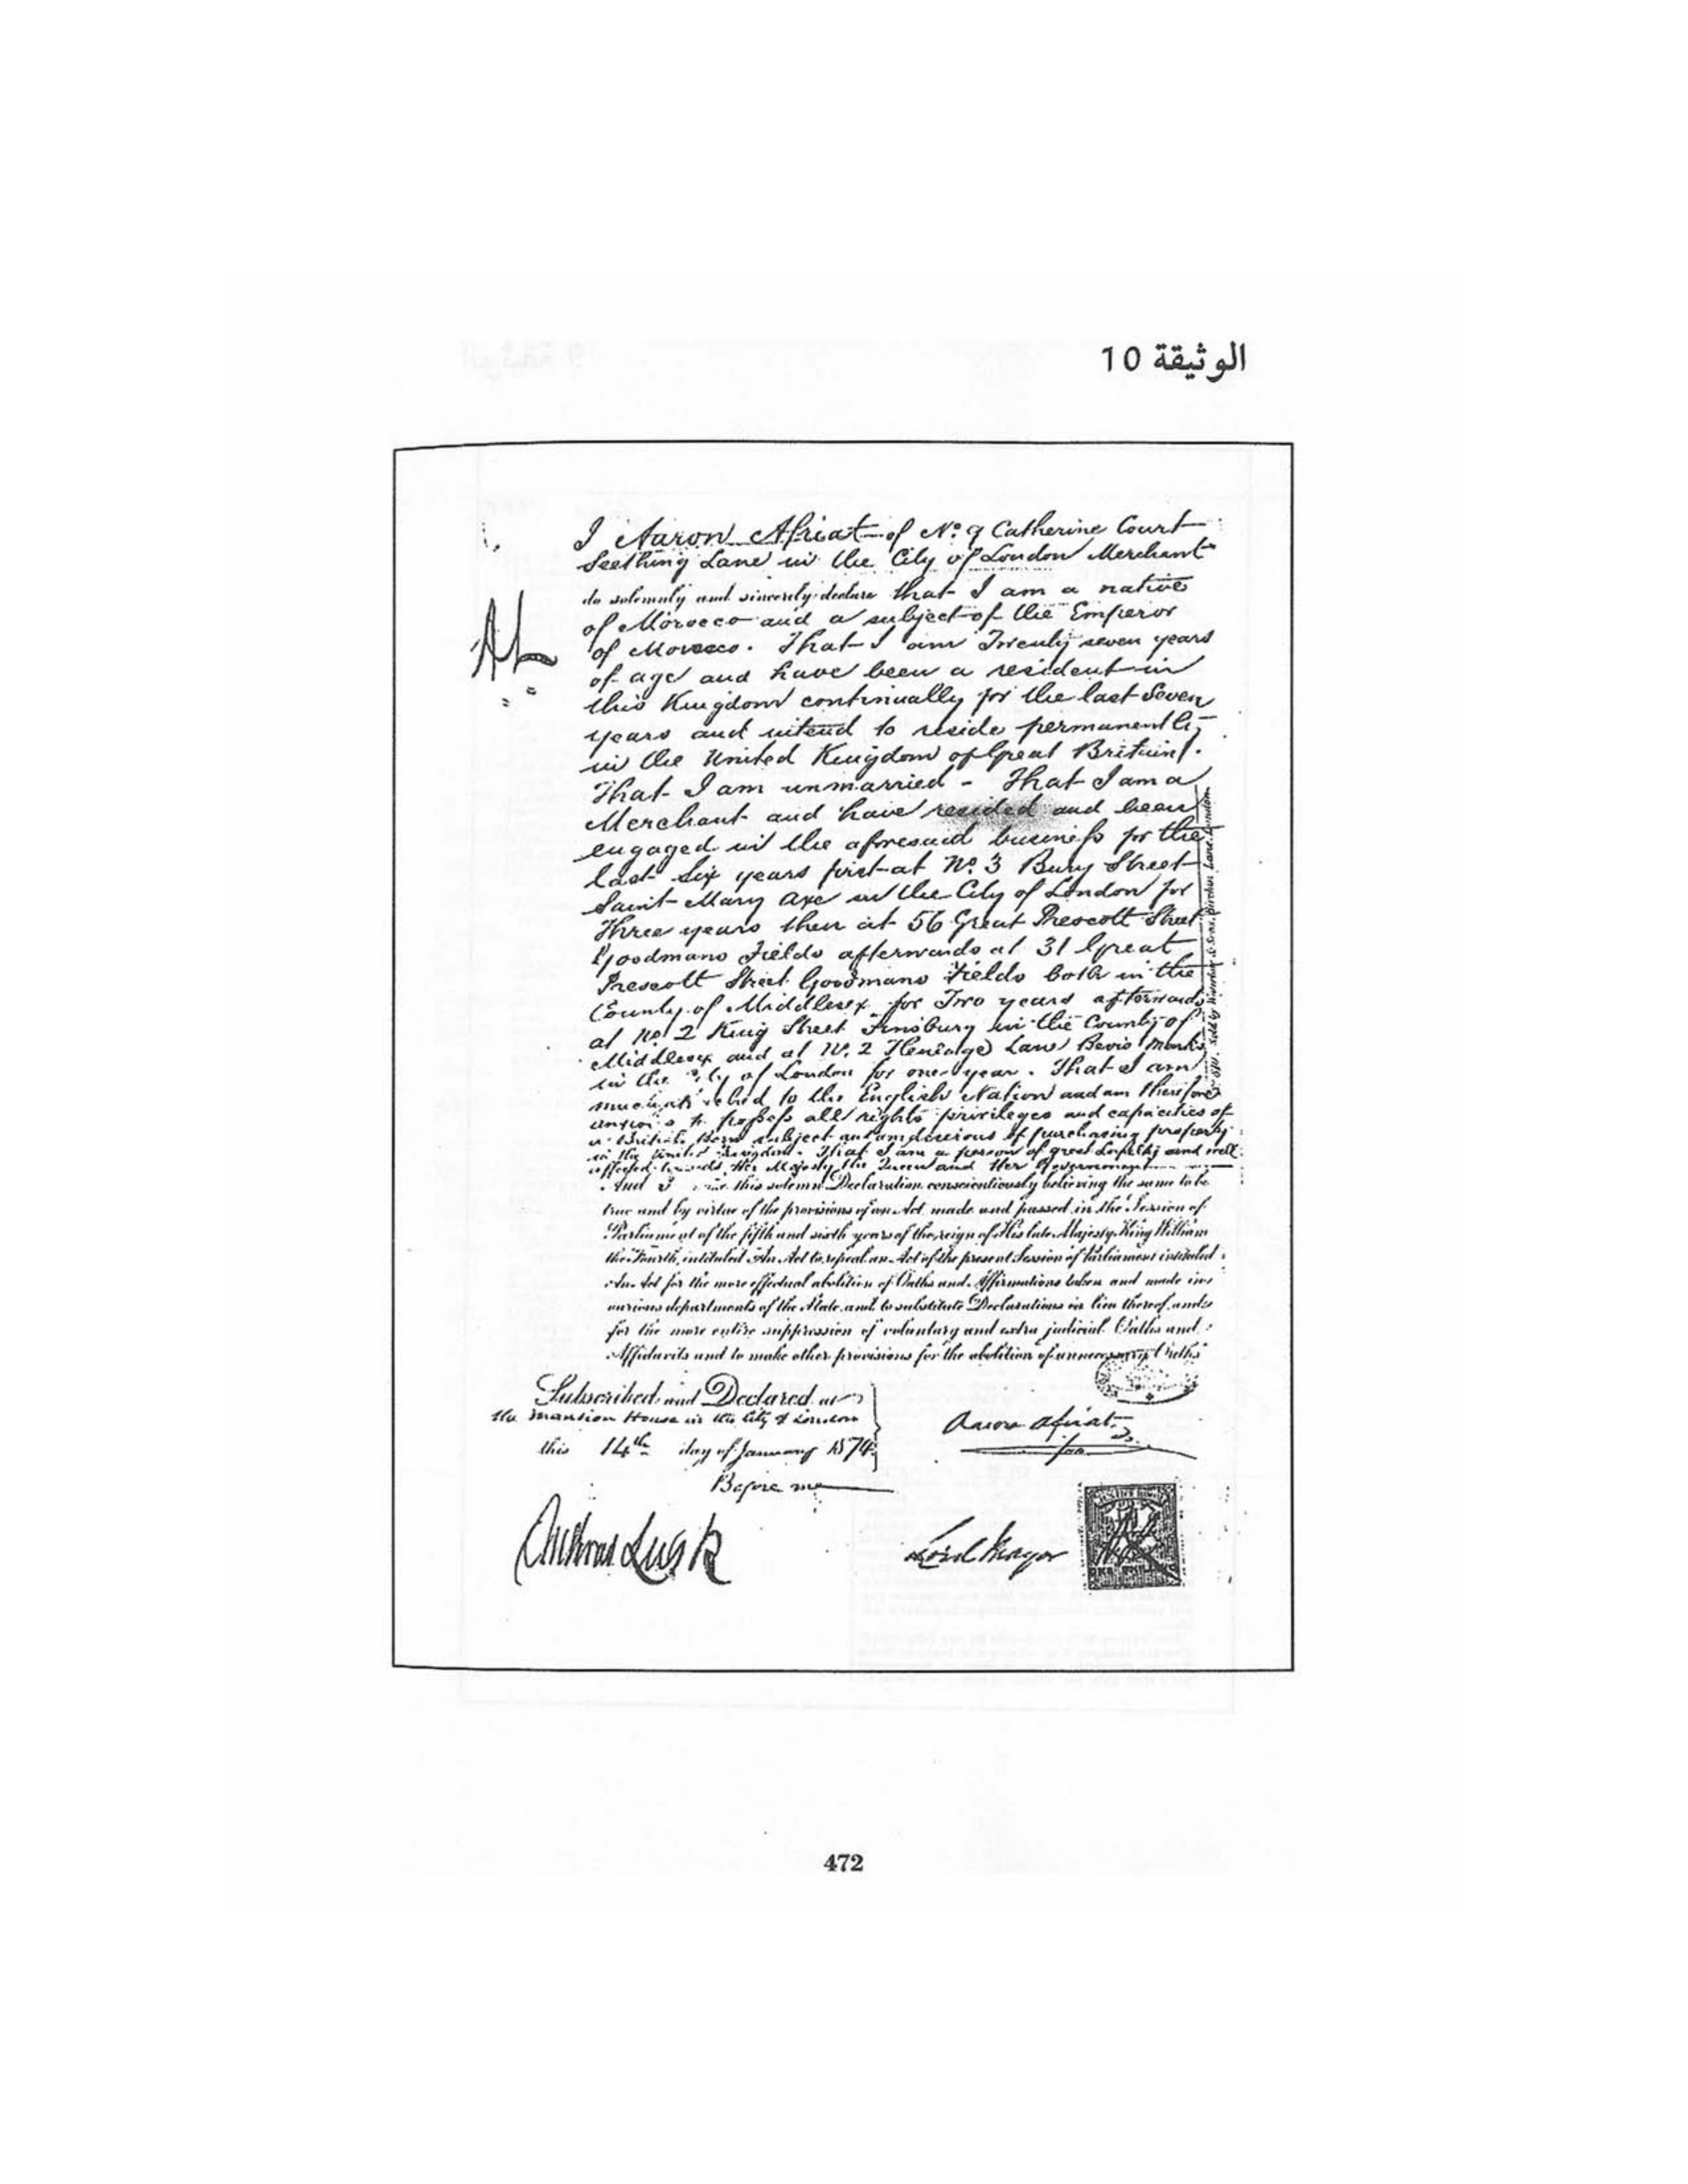 الوثيقة 10
I Aaron Afriat of No. 9 Catherine Court
Seething Lane in the City of London Merchant
do solemnly and sincerely declare that I am a native
of Morocco and a subject of the Emperor
of Morocco. That I am Twenty seven years
of age and have been a resident in
this Kingdom continually for the last Seven
years and intend to reside permanently
in the United Kingdom of Great Britain.
That I am unmarried - That I am a
Merchant and have resided and been
engaged in the aforesaid business for the
last six years first at No. 3 Bury Street
Saint Mary Axe in the City of London for
Three years then at 56 Great Prescott Street
Goodmans Fields afterwards at 31 Great
Prescott Street Goodmans Fields both in the
County of Middlesex for Two years afterwards
at No. 2 King Street Finsbury in the County of
Middlesex and at No. 2 Heneage Lane Bevis Marks
in the City of London for one year. That I am
much attached to the English Nation and am therefore
anxious to possess all rights privileges and capacities of
a British Born subject and am desirous of purchasing property
in the United Kingdom. That I am a person of great loyalty and well
affected towards Her Majesty the Queen and Her Government
And I this solemn Declaration conscientiously believing the same to be
true and by virtue of the provisions of an Act made and passed in the Session of
Parliament of the fifth and sixth years of the reign of His late Majesty King William
the Fourth, intituled An Act to repeal an Act of the present Session of Parliament intituled
An Act for the more effectual abolition of Oaths and Affirmations taken and made in
various departments of the State and to substitute Declarations in lieu thereof and
for the more entire suppression of voluntary and extra judicial Oaths and
Affidavits and to make other provisions for the abolition of unnecessary Oaths
Subscribed and Declared at
the Mansion House in the City of London
this 14th day of January 1874
Before me
Aaron Afriat
Andrew Lusk
Lord Mayor
472